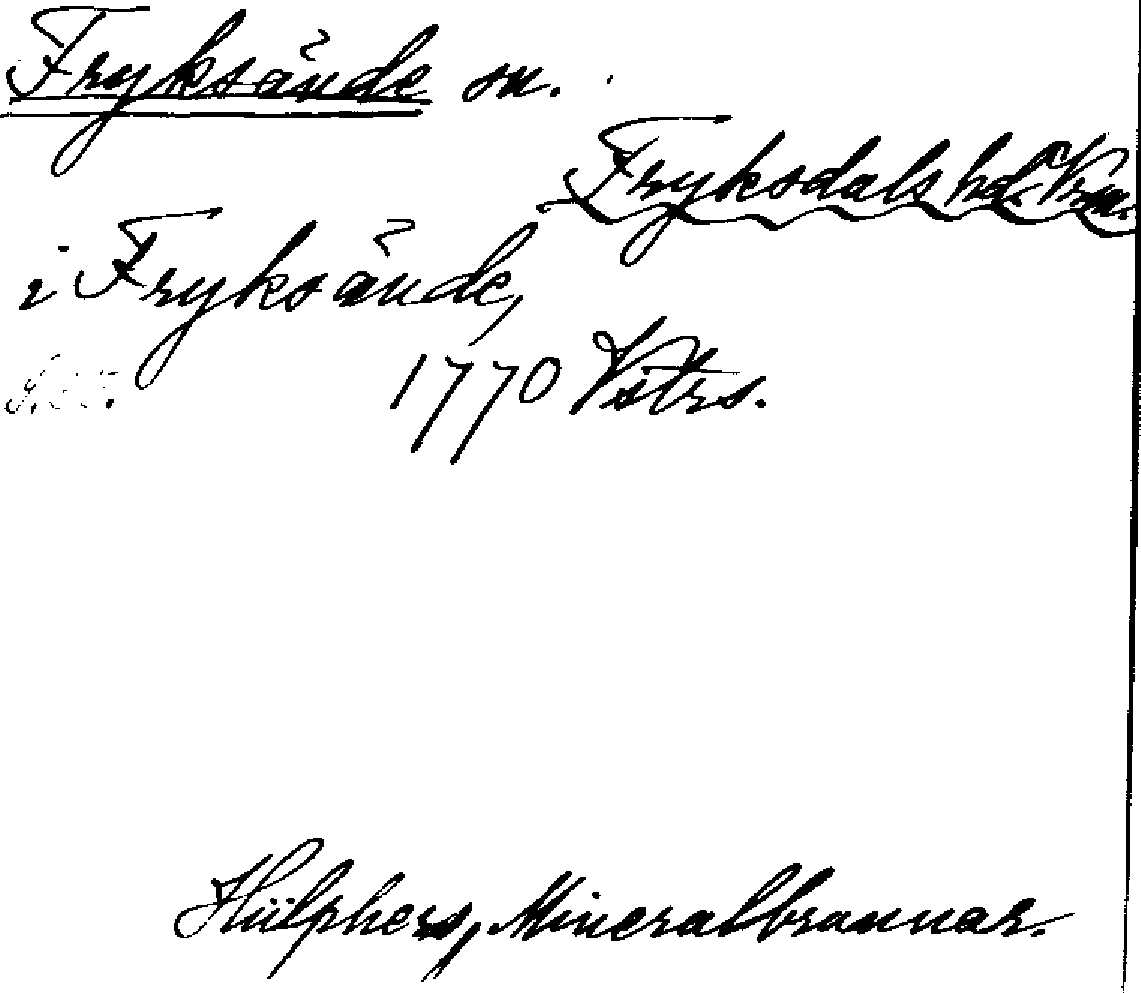 Fryksände sn.
Fryksdals hd. Vrm.
i Fryksände,
1770 Vstrs.
Hülphers, Mineralbrunnar.